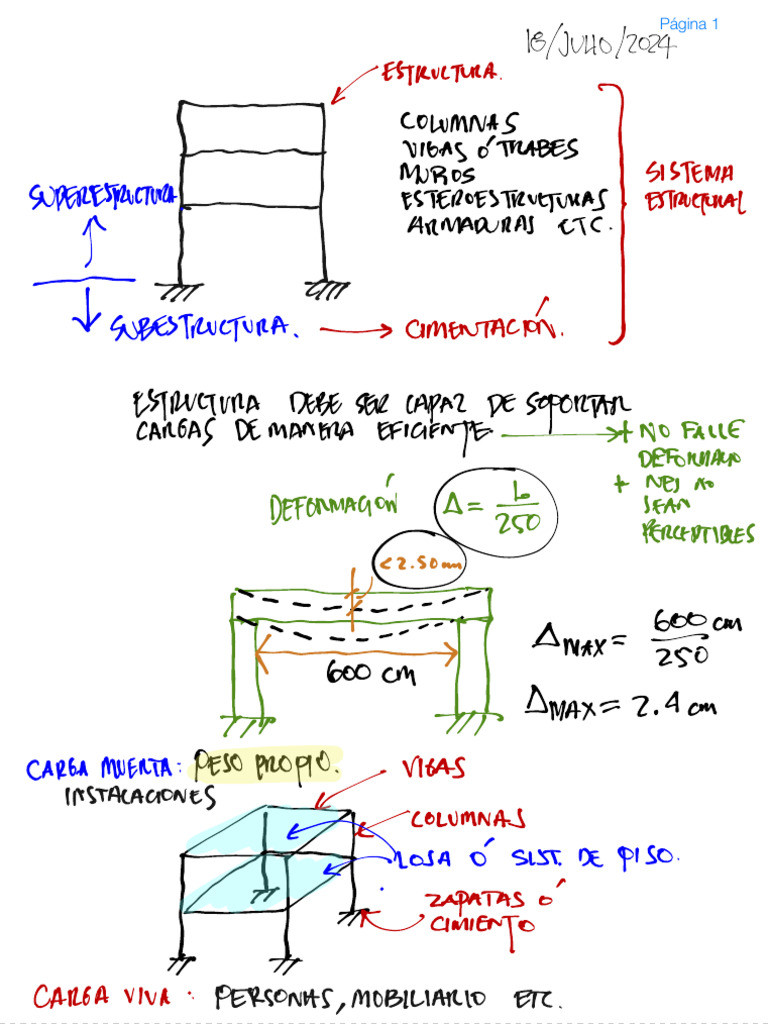 Página 1
18/JULIO/2024
ESTRUCTURA.
COLUMNAS
VIGAS Ó TRABES
MUROS
ESTEROESTRUCTURAS
ARMADURAS ETC.
SISTEMA
ESTRUCTURAL
SUPERESTRUCTURA
SUBESTRUCTURA.
CIMENTACIÓN.
ESTRUCTURA DEBE SER CAPAZ DE SOPORTAR
CARGAS DE MANERA EFICIENTE
+ NO FALLE
DEFORMACIO
+ NES NO
SEAN
PERCEPTIBLES
DEFORMACIÓN
Δ = L/250
<2.50cm
600 cm
ΔMAX = 600 cm/250
ΔMAX = 2.4 cm
CARGA MUERTA: PESO PROPIO.
INSTALACIONES
VIGAS
COLUMNAS
LOSA Ó SIST. DE PISO.
ZAPATAS Ó
CIMIENTO
CARGA VIVA: PERSONAS, MOBILIARIO ETC.